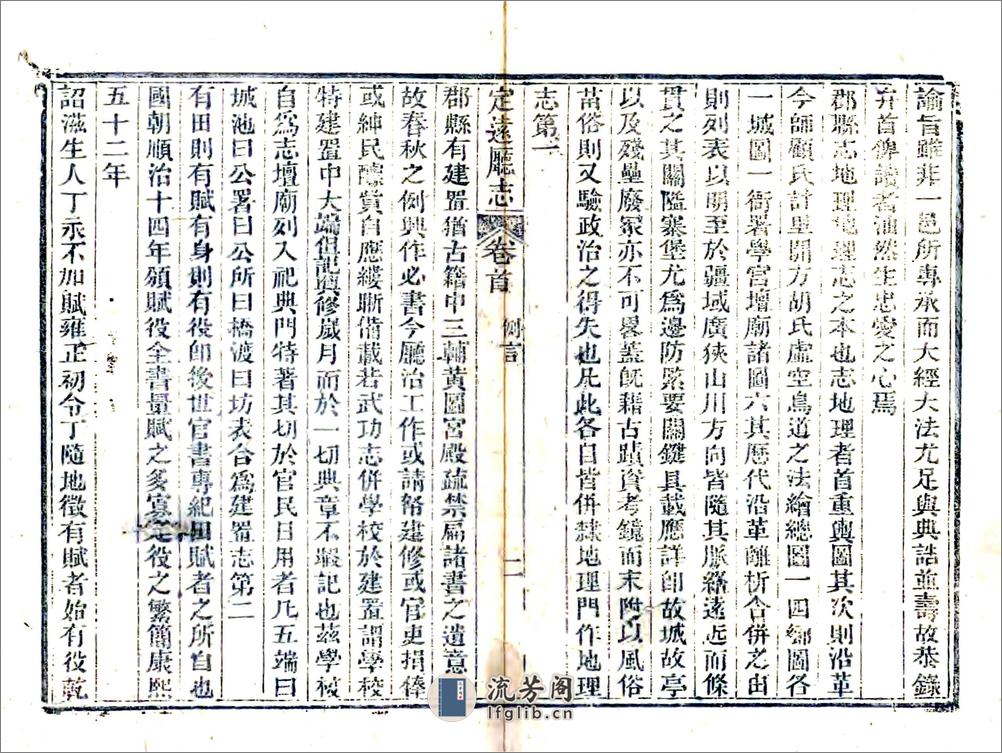 諭旨雖非一邑所專承而大經大法尤足與典誥並壽故恭錄
弁首俾讀者油然生忠愛之心焉
郡縣志地理志之本也志地理者首重輿圖其次則沿革
今師顧氏計里開方胡氏虛空鳥道之法繪總圖一四鄉圖各
一城圖一衙署學宮壇廟諸圖六其歷代沿革離析合併之由
則列表以明至於疆域廣狹山川方向皆隨其脈絡遠近而條
貫之其關隘寨堡尤爲邊防緊要關鍵具載應詳卽故城故亭
以及殘壘廢冢亦不可畧蓋旣藉古蹟資考鏡而末附以風俗
苗俗則又驗政治之得失也凡此各目皆併隸地理門作地理
志第一
定遠廳志 卷首 例言 二
郡縣有建置猶古籍中三輔黃圖宮殿疏禁扁諸書之遺意
故春秋之例興作必書今廳治工作或請帑建修或官吏捐俸
或紳民醵貲自應縷晰備載若武功志併學校於建置謂學校
特建置中大端但記興修歲月而於一切典章不暇記也茲學校
自爲志壇廟列入祀典門特著其切於官民日用者凡五端曰
城池曰公署曰公所曰橋渡曰坊表合爲建置志第二
有田則有賦有身則有役卽後世官書專紀田賦者之所自也
國朝順治十四年頒賦役全書量賦之多寡定役之繁簡康熙
五十二年
詔滋生人丁永不加賦雍正初令丁隨地徵有賦者始有役乾
流芳阁
lfglib.cn